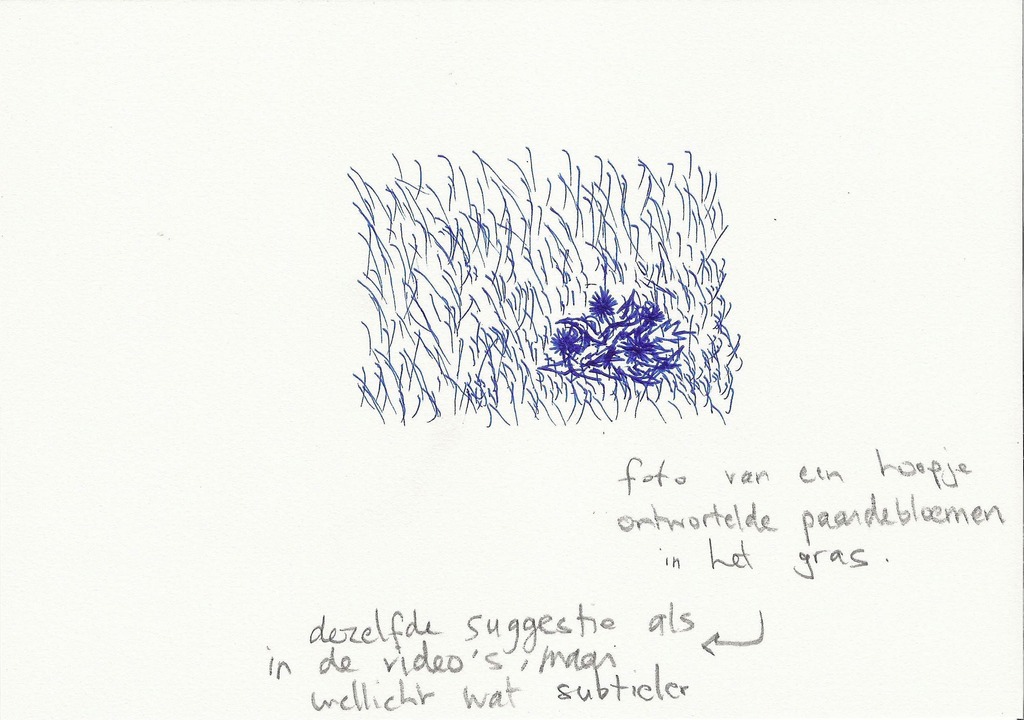 foto van een hoopje
ontwortelde paardebloemen
in het gras.
dezelfde suggestie als
in de video's, maar
wellicht wat subtieler